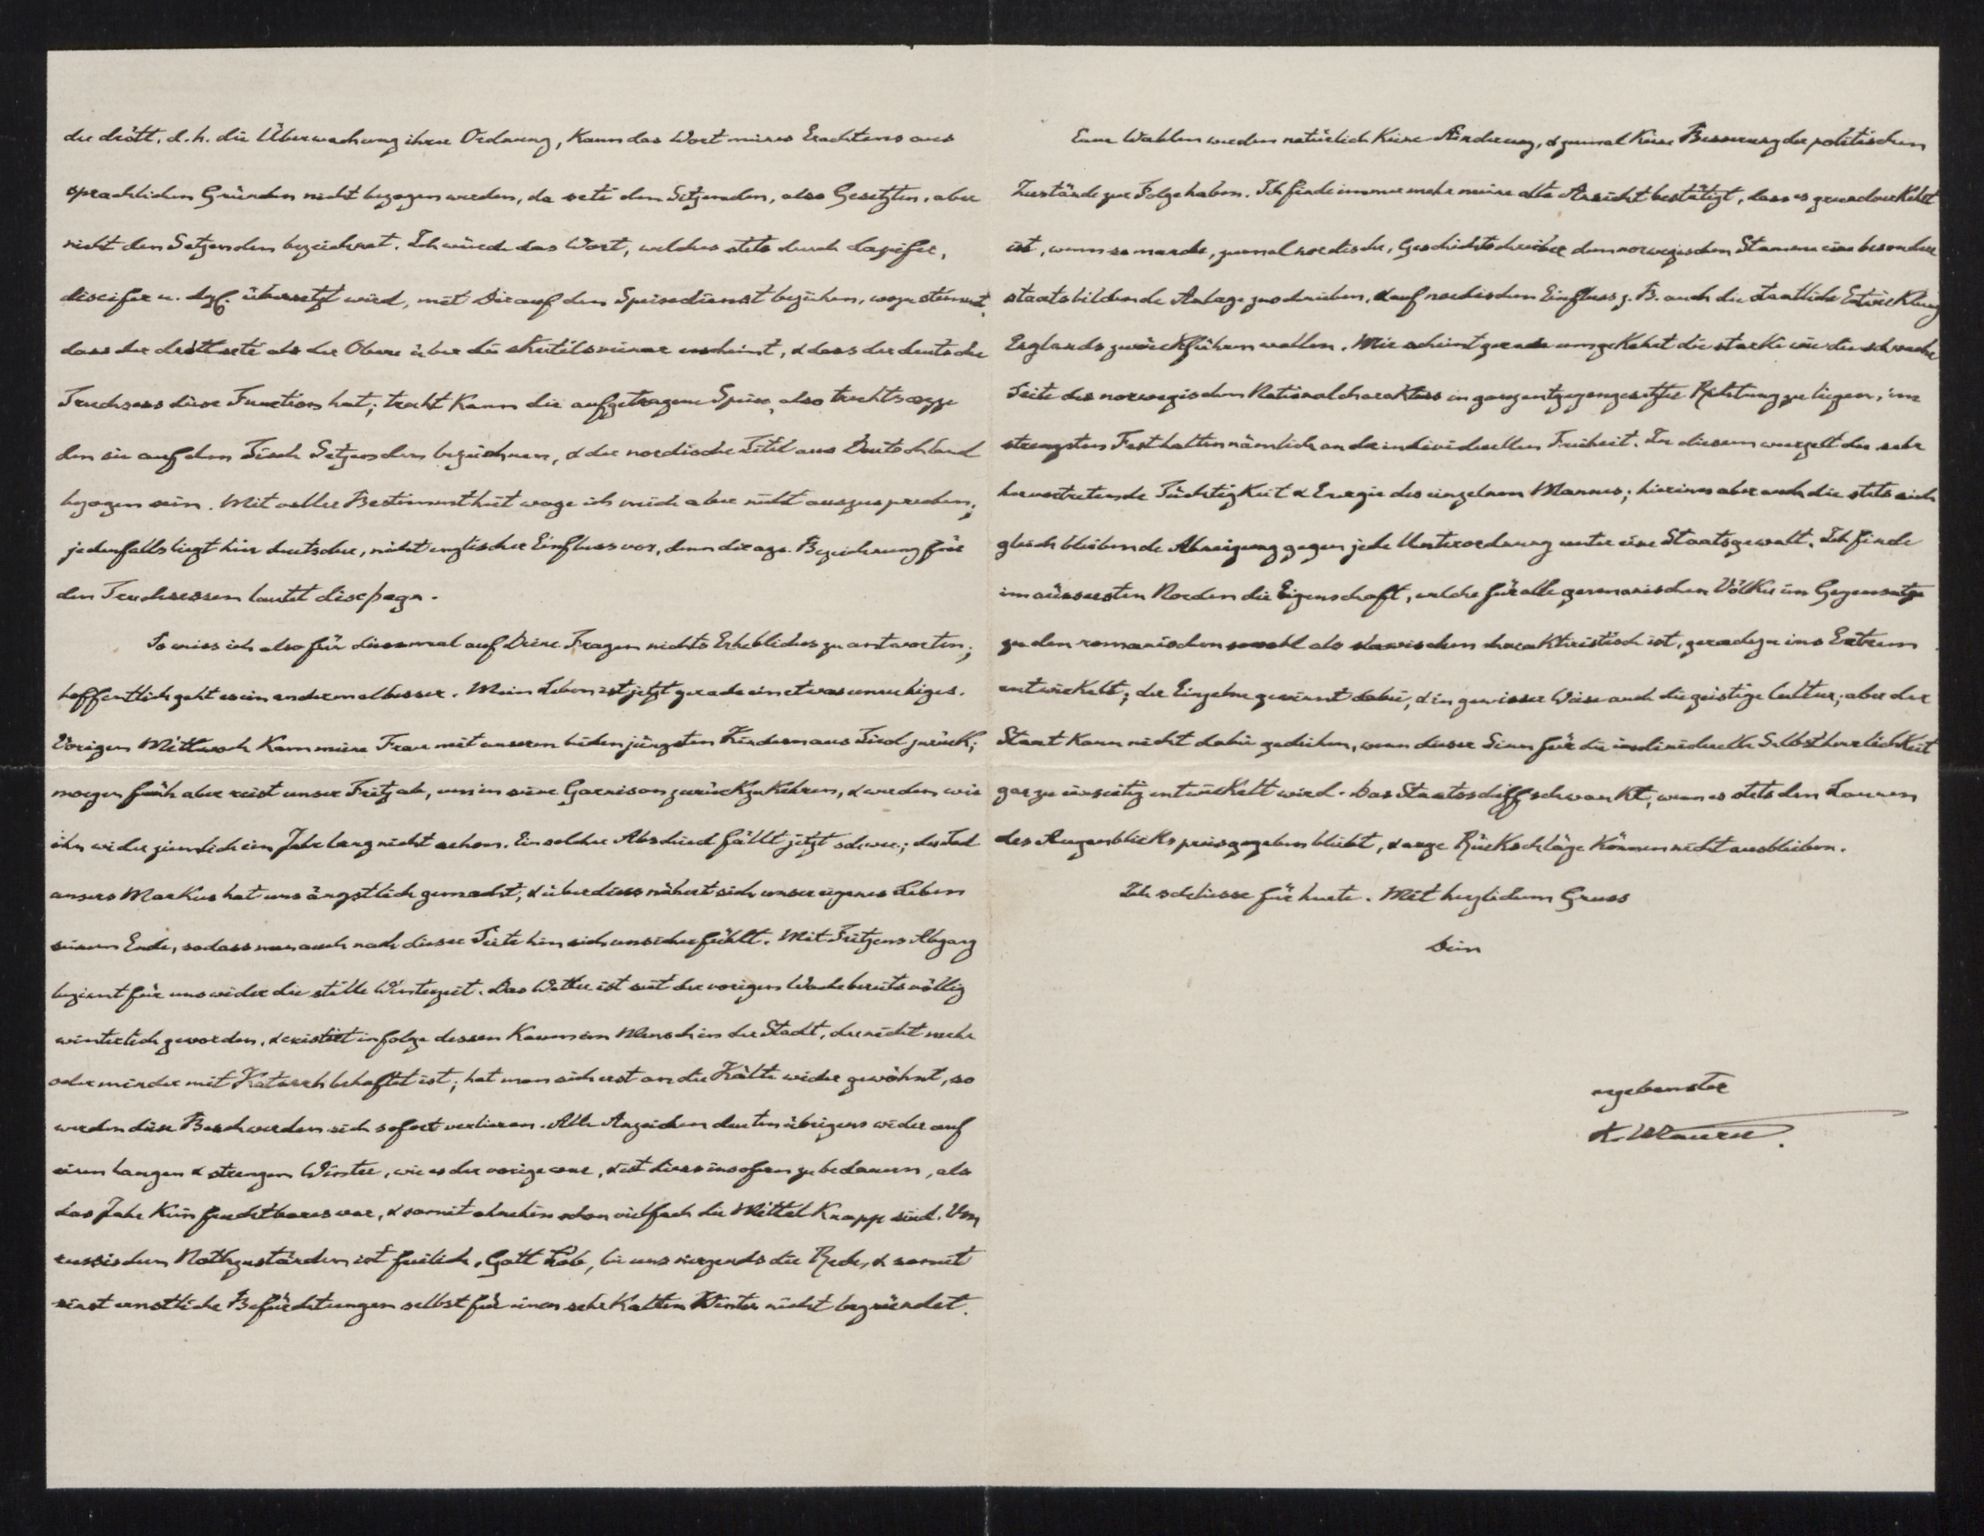 die drótt, d. h. die Überwachung ihrer Ordnung, kann das Wort meines Erachtens aus
sprachlichen Gründen nicht bezogen werden, da seti den Sitzenden, also Gesetzten, aber
nicht den Setzenden bezeichnet. Ich würde das Wort, welches stets durch dapifer,
discifer u. dgl. übersetzt wird, mit Dir auf den Speisedienst beziehen, wozu stimmt,
dass der dróttseti als der Obere über die skutilsveinar erscheint, & dass der deutsche
Truchsess diese Function hat; truht kann die aufgetragene Speise, also truhtsæzze
den sie auf den Tisch Setzenden bezeichnen, & der nordische Titel aus Deutschland
bezogen sein. Mit voller Bestimmtheit wage ich mich aber nicht auszusprechen;
jedenfalls liegt hier deutscher, nicht englischer Einfluss vor, denn die ags. Bezeichnung für
den Truchsessen lautet discþegn.
So weiss ich also für diessmal auf Deine Fragen nichts Erhebliches zu antworten;
hoffentlich geht es ein andermal besser. Mein Leben ist jetzt gerade ein etwas unruhiges.
Vorigen Mittwoch kam meine Frau mit unseren beiden jüngsten Kindern aus Tirol zurück;
morgen früh aber reist unser Fritz ab, um in seine Garnison zurückzukehren, & werden wir
ihn wider ziemlich ein Jahr lang nicht sehen. Ein solcher Abschied fällt jetzt schwer; der Tod
unsers Markus hat uns ängstlich gemacht, & überdiess nähert sich unser eigenes Leben
seinem Ende, sodass man auch nach dieser Seite hin sich unsicher fühlt. Mit Fritzens Abgang
beginnt für uns wider die stille Winterzeit. Das Wetter ist seit der vorigen Woche bereits völlig
winterlich geworden, & existirt in folge dessen kaum ein Mensch in der Stadt, der nicht mehr
oder minder mit Katarrh behaftet ist; hat man sich erst an die Kälte wider gewöhnt, so
werden diese Beschwerden sich sofort verlieren. Alle Anzeichen deuten übrigens wider auf
einen langen & strengen Winter, wie es der vorige war, & ist diess insofern zu bedauern, als
das Jahr kein fruchtbares war, & somit ohnehin schon vielfach die Mittel knapp sind. Von
russischen Nothzuständen ist freilich, Gott Lob, bei uns nirgends die Rede, & somit
sind ernstliche Befürchtungen selbst für einen sehr kalten Winter nicht begründet.
Eure Wahlen werden natürlich keine Änderung, & zumal keine Besserung der politischen
Zustände zur Folge haben. Ich finde immer mehr meine alte Ansicht bestätigt, dass es grundverkehrt
ist, wenn so manche, zumal nordische, Geschichtschreiber dem norwegischen Stamme eine besondere
staatsbildende Anlage zuschreiben, & auf nordischen Einfluss z. B. auch die staatliche Entwicklung
Englands zurückführen wollen. Mir scheint gerade umgekehrt die starke wie die schwache
Seite des norwegischen Nationalcharakters in ganz entgegengesetzter Richtung zu liegen, im
strengsten Festhalten nämlich an der individuellen Freiheit. In diesem wurzelt die sehr
hervortretende Tüchtigkeit & Energie des einzelnen Mannes; hierinn aber auch die stets sich
gleich bleibende Abneigung gegen jede Unterordnung unter eine Staatsgewalt. Ich finde
im äussersten Norden die Eigenschaft, welche für alle germanischen Völker im Gegensatze
zu den romanischen sowohl als slawischen charakteristisch ist, geradezu ins Extrem
entwickelt; der Einzelne gewinnt dabei, & in gewisser Weise auch die geistige Cultur; aber der
Staat kann nicht dabei gedeihen, wenn dieser Sinn für die individuelle Selbstherrlichkeit
gar zu einseitig entwickelt wird. Das Staatsschiff schwankt, wenn es stets den Launen
des Augenblicks preisgegeben bleibt, & arge Rückschläge können nicht ausbleiben.
Ich schliesse für heute. Mit herzlichem Gruss
Dein
ergebenster
K. Maurer.